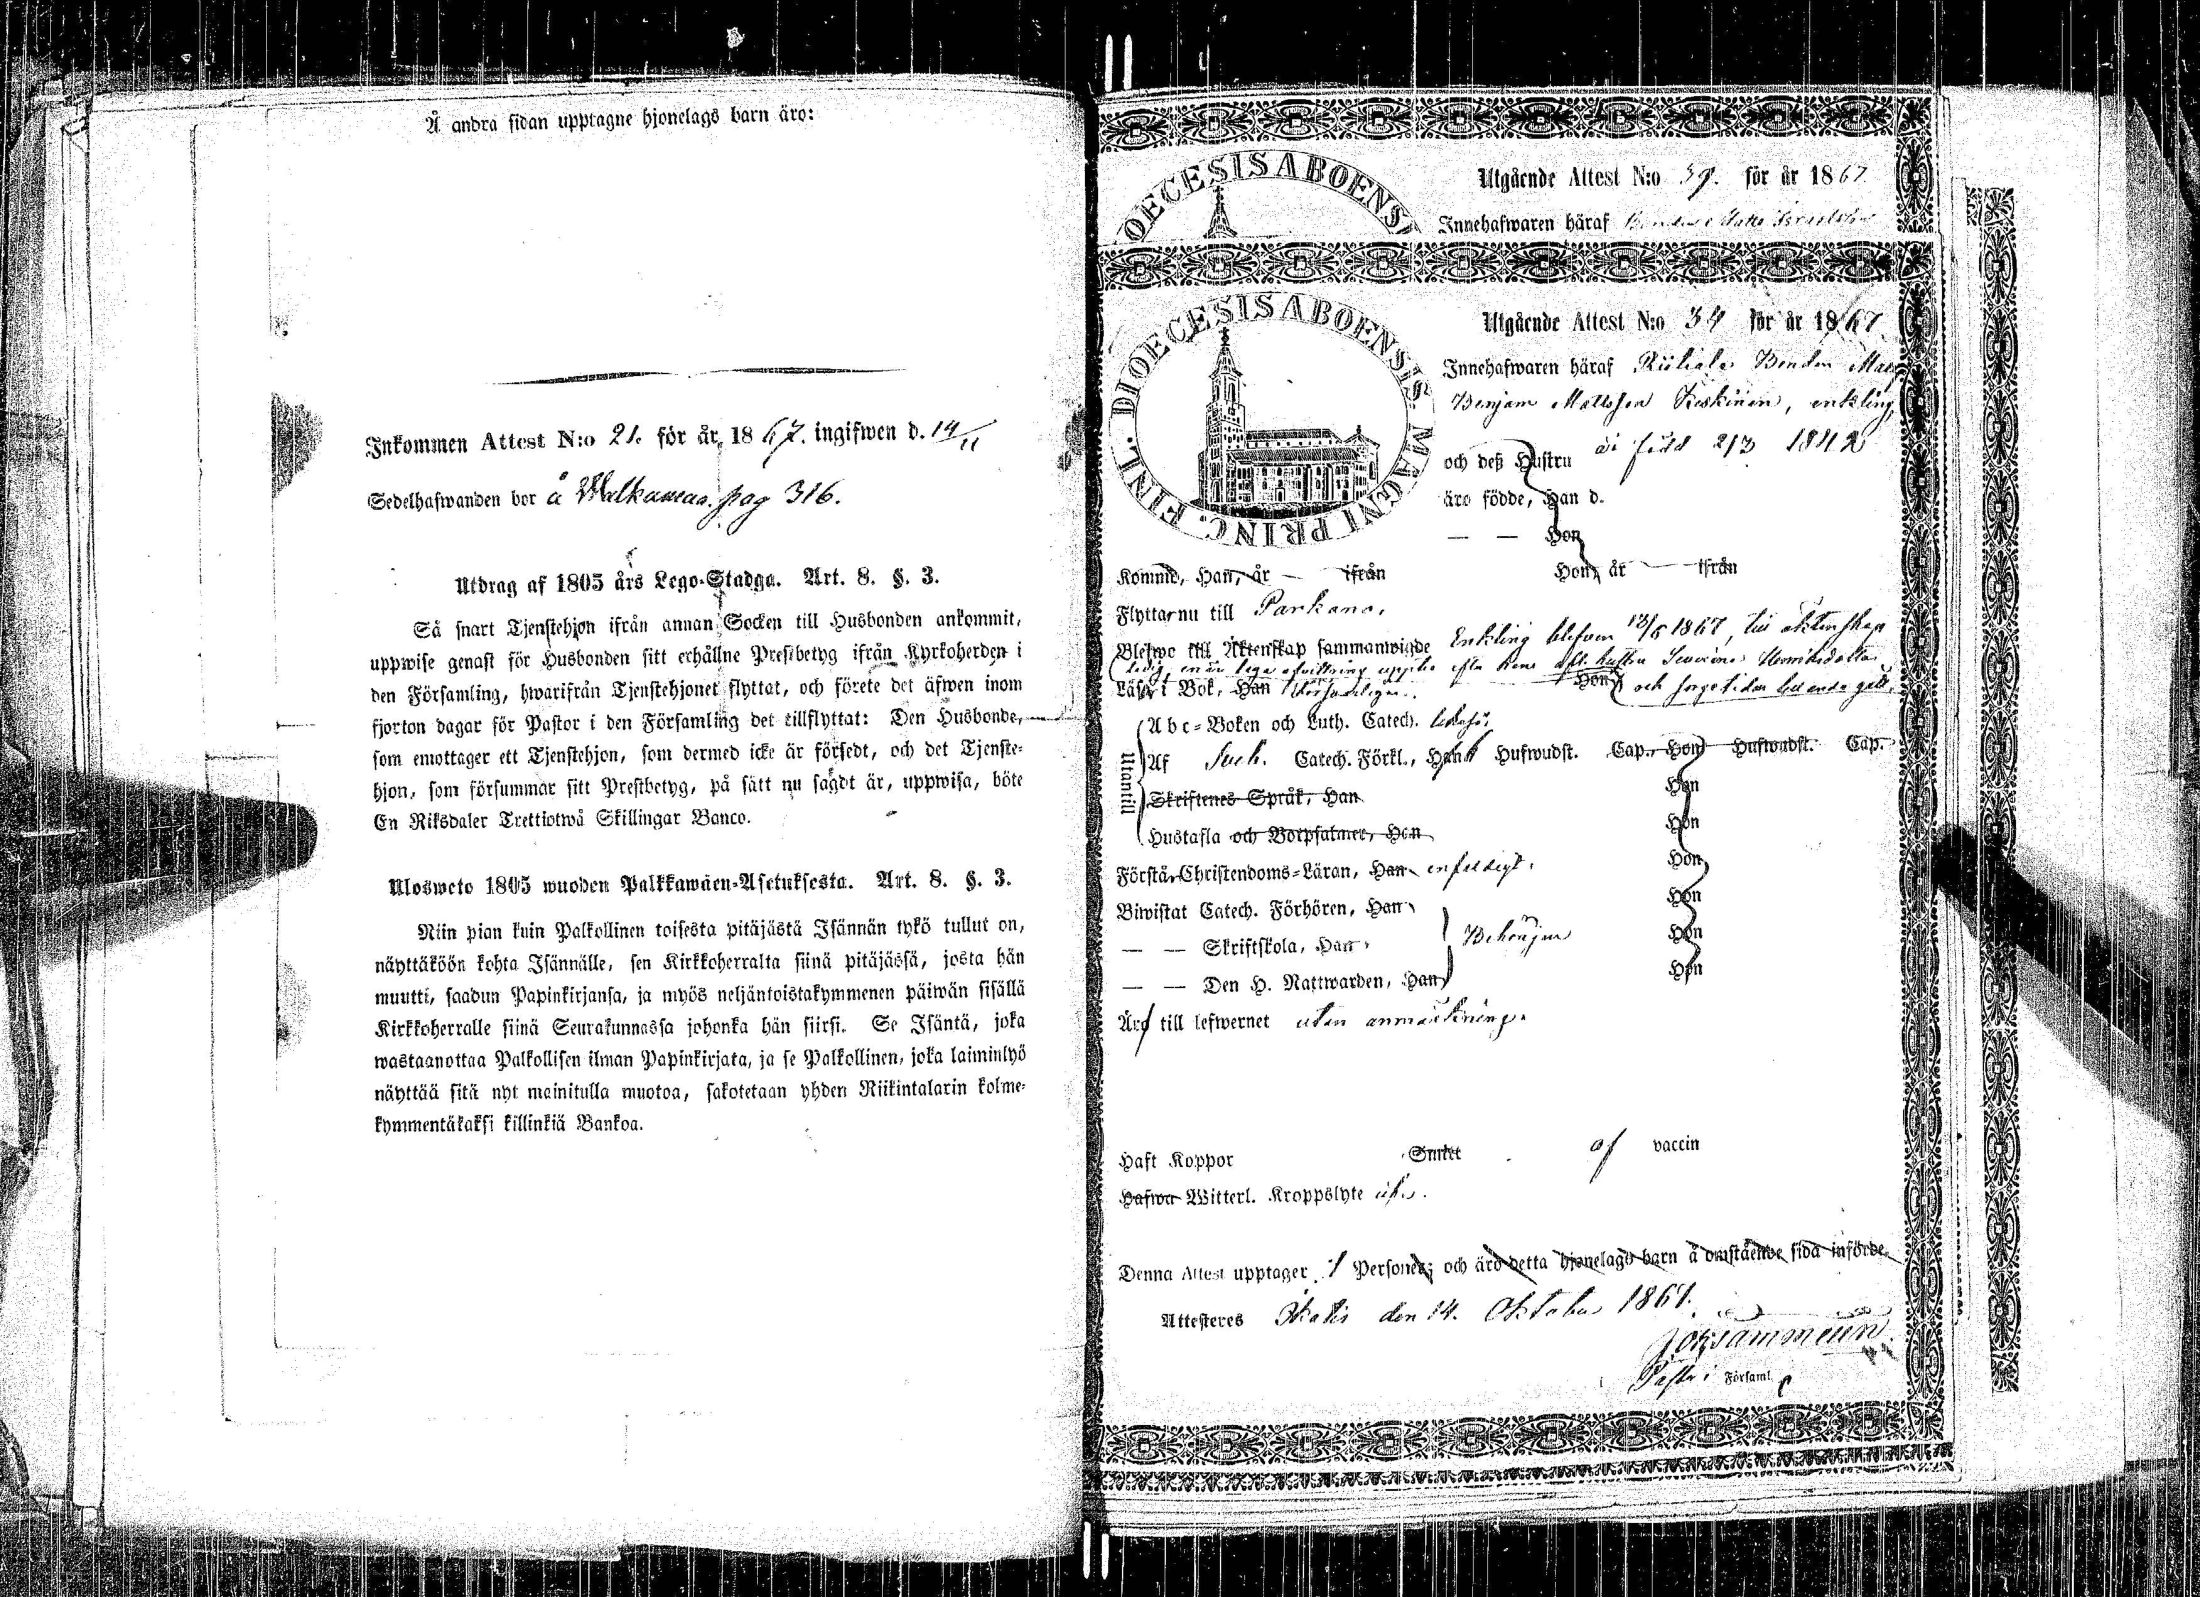 Å andra sidan upptagne hjonelags barn äro:
Inkommen Attest N:o 21. för år 1867. ingifwen d. 14/11
Sedelhafwanden bor å Walkamas. pag 316.
Utdrag af 1805 års Lego-Stadga. Art. 8. §. 3.
Så snart Tjenstehjon ifrån annan Socken till Husbonden ankommit,
uppwise genast för Husbonden sitt erhållne Prestbetyg ifrån Kyrkoherden i
den Församling, hwarifrån Tjenstehjonet flyttat, och förete det äfwen inom
fjorton dagar för Pastor i den Församling det tillflyttat: Den Husbonde,
som emottager ett Tjenstehjon, som dermed icke är försedt, och det Tjenste-
hjon, som försummar sitt Prestbetyg, på sätt nu sagdt är, uppwisa, böte
En Riksdaler Trettiotwå Skillingar Banco.
Ulosweto 1805 wuoden Palkkawäen-Asetuksesta. Art. 8. §. 3.
Niin pian kuin Palkollinen toisesta pitäjästä Isännän tykö tullut on,
näyttäköön kohta Isännälle, sen Kirkkoherralta siinä pitäjässä, josta hän
muutti, saadun Papinkirjansa, ja myös neljäntoistakymmenen päiwän sisällä
Kirkkoherralle siinä Seurakunnassa johonka hän siirsi. Se Isäntä, joka
wastaanottaa Palkollisen ilman Papinkirjata, ja se Palkollinen, joka laiminlyö
näyttää sitä nyt mainitulla muotoa, sakotetaan yhden Riikintalarin kolme-
kymmentäkaksi killinkiä Bankoa.
DIOECESIS ABOENSIS
Utgående Attest N:o 39. för år 1867
Innehafwaren häraf
DIOECESIS ABOENSIS. MAGNI PRINC. FINL.
Utgående Attest N:o 34 för år 1867
Innehafwaren häraf Bonden
Benjam Mattsson Keskinen, enkling
och deß Hustru är född 2/3 1842
äro födde, Han d.
— — Hon
Kommo, Han, år — ifrån Hon, år — ifrån
Flyttar nu till Parkano.
Blefwo till Äktenskap sammanwigde Enkling blefwen 13/6 1867, till äktenskap
ledig, efter hustru Henriksdotter
Läser i Bok, Han Hon och
Utantill
Abc-Boken och Luth. Catech.
Af Sueb. Catech. Förkl., Han Hufwudst. Cap., Hon Hufwudst. Cap.
Skriftenes Språk, Han Hon
Hustafla och Botpsalmer, Han Hon
Förstår Christendoms-Läran, Han enfaldigt. Hon
Biwistat Catech. Förhören, Han Hon
— — Skriftskola, Han Behörigen Hon
— — Den H. Nattwarden, Han Hon
Äro till lefwernet utan anmärkning.
Haft Koppor Smitt af vaccin
Hafwa Witterl. Kroppslyte
Denna Attest upptager 1 Personer; och äro detta hjonelags barn å omstående sida införde.
Attesteres Ikalis den 14. Oktober 1867.
Pastor i Församl.